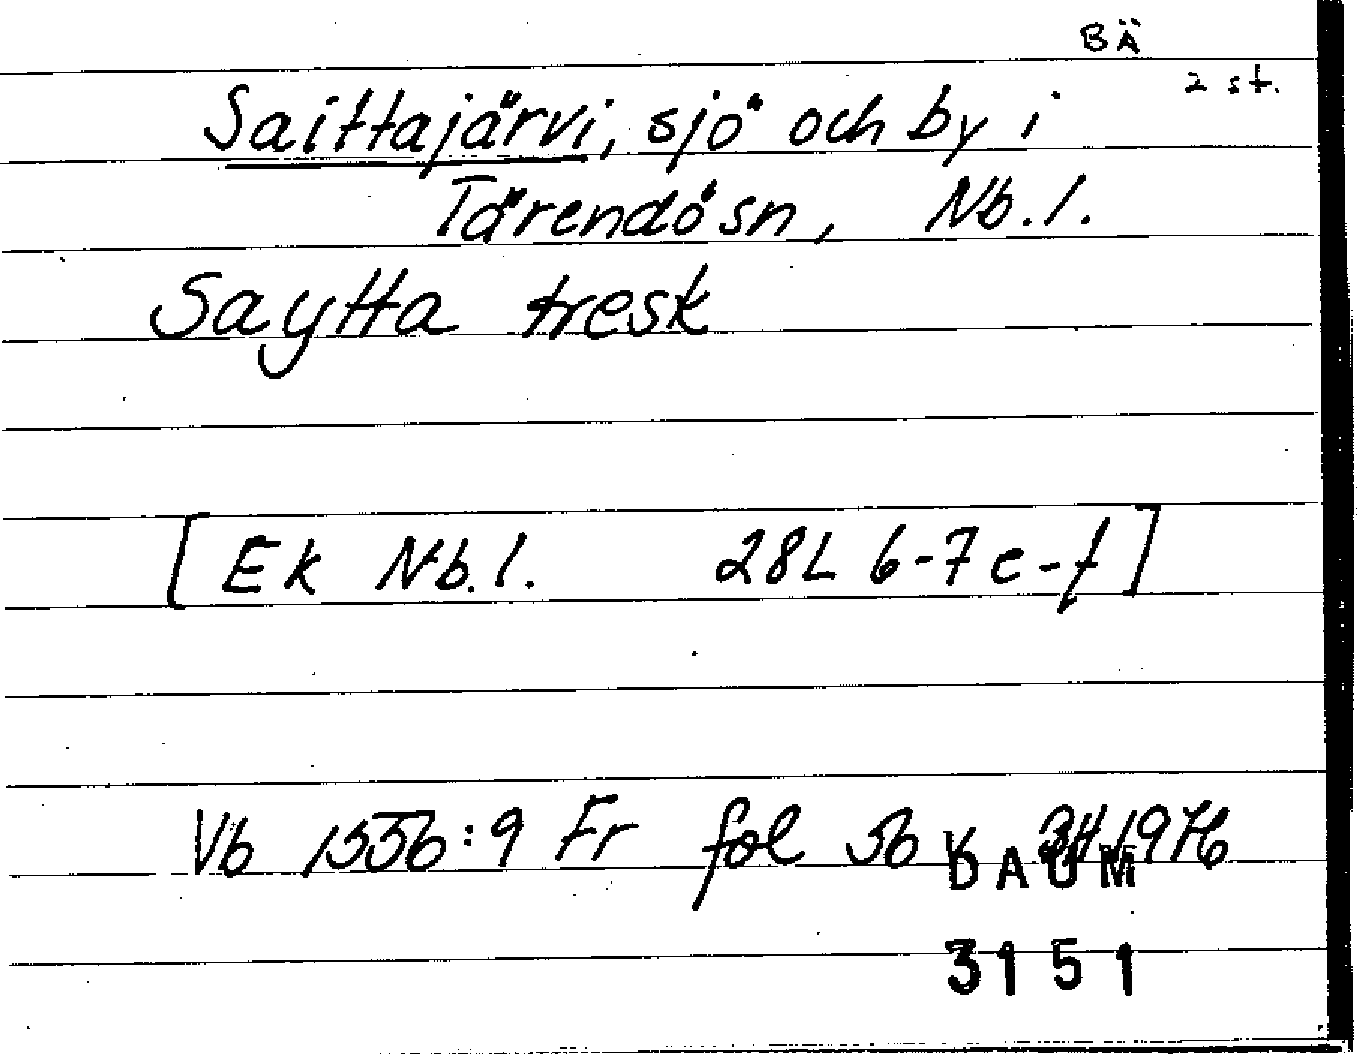 BÄ
2 st.
Saittajärvi, sjö och by i
Tärendö sn, Nb. l.
Saytta tresk
[Ek Nb. l. 28L 6-7 e-f]
Vb 1556:9 Fr fol 56 v 1976
DAUM
3151